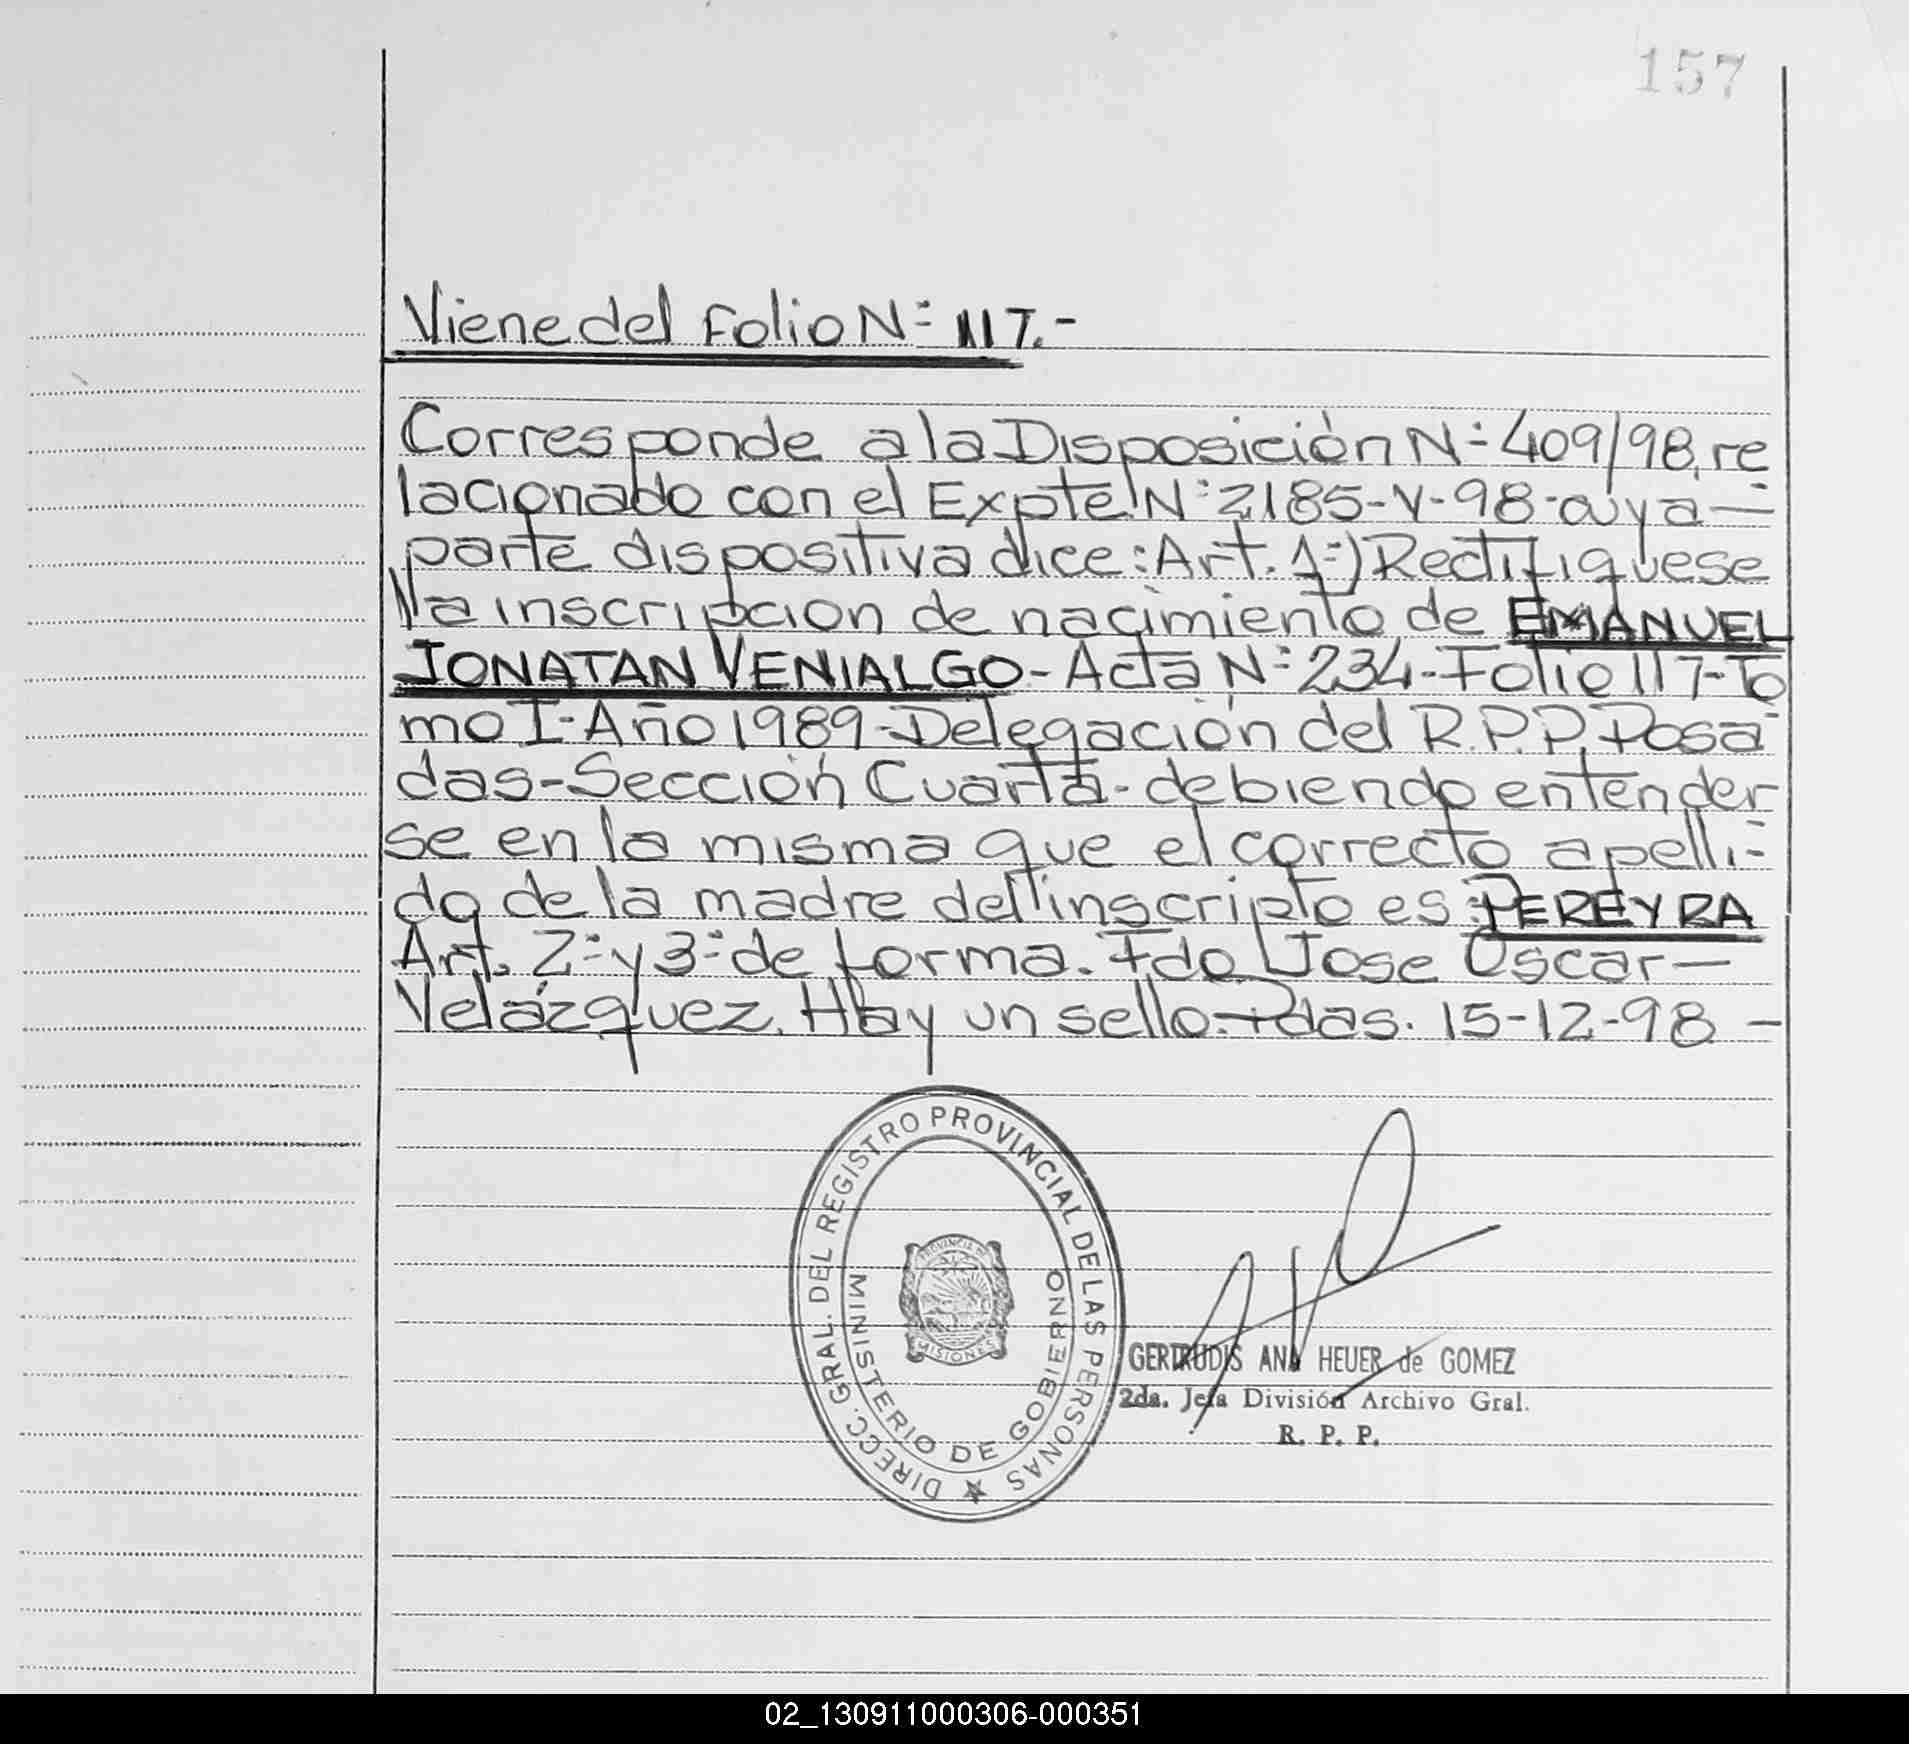 157
Viene del Folio N= 117.-
Corresponde a la Disposición N= 409/98, re
lacionado con el Expte N= 2185-V-98-cuya-
parte dispositiva dice: Art. 1=) Rectifiquese
la inscripcion de nacimiento de EMANUEL
JONATAN VENIALGO-Acta N= 234-Folio 117-To
mo I-Año 1989-Delegación del R.P.P. Posa
das-Sección Cuarta-debiendo entender
se en la misma que el correcto apelli-
do de la madre del inscripto es: PEREYRA
Art. 2= y 3= de forma. Fdo Jose Oscar-
Velázquez. Hay un sello. Pdas. 15-12-98-
DIRECC. GRAL. DEL REGISTRO PROVINCIAL DE LAS PERSONAS
MINISTERIO DE GOBIERNO
PROVINCIA DE
MISIONES
GERTRUDIS ANA HEUER de GOMEZ
2da. Jefa División Archivo Gral.
R. P. P.
02_130911000306-000351